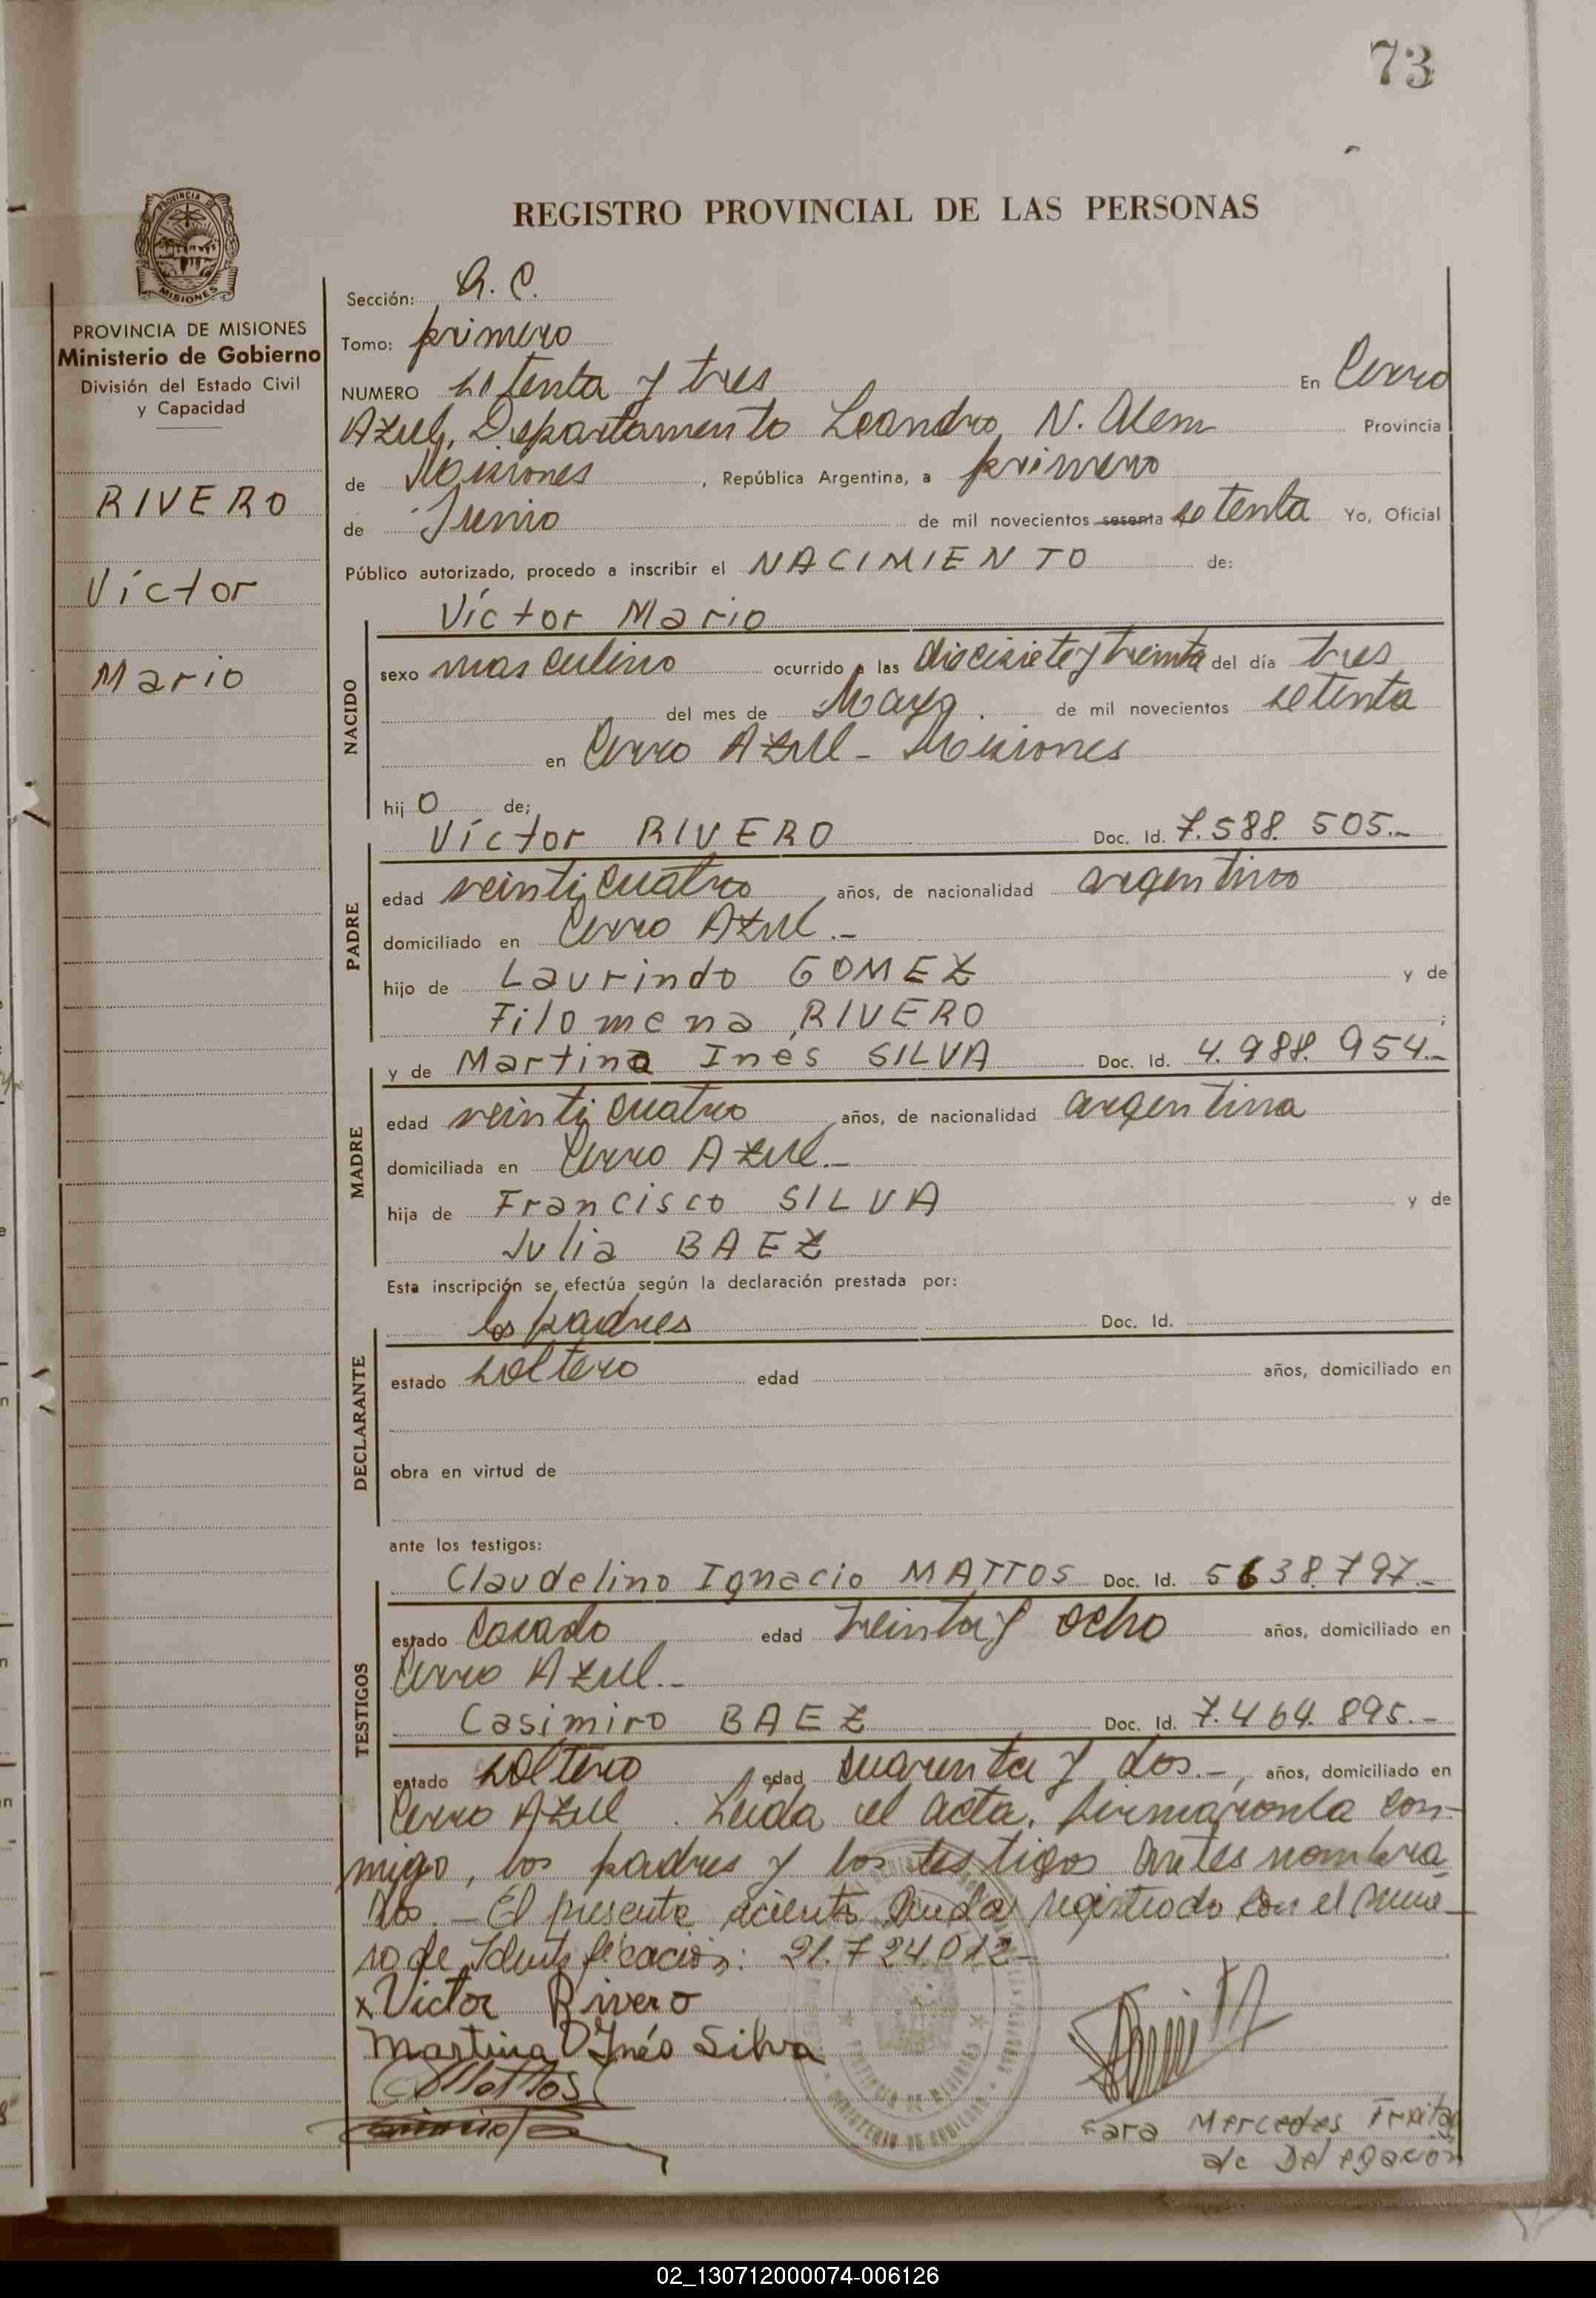 73
REGISTRO PROVINCIAL DE LAS PERSONAS
PROVINCIA DE
MISIONES
PROVINCIA DE MISIONES
Ministerio de Gobierno
División del Estado Civil
y Capacidad
RIVERO
Víctor
Mario
Sección:
Tomo: primero
NUMERO setenta y tres En Cerro
Azul, Departamento Leandro N. Alem Provincia
de Misiones, República Argentina, a primero
de Junio de mil novecientos sesenta setenta Yo, Oficial
Público autorizado, procedo a inscribir el NACIMIENTO de:
Víctor Mario
NACIDO
sexo masculino ocurrido a las diecisiete y treinta del día tres
del mes de Mayo. de mil novecientos setenta
en Cerro Azul - Misiones
hijo de;
Víctor RIVERO Doc. Id. 7.588.505.-
PADRE
edad veinticuatro años, de nacionalidad argentino
domiciliado en Cerro Azul.-
hijo de Laurindo GOMEZ y de
Filomena RIVERO;
y de Martina Inés SILVA Doc. Id. 4.988.954.-
MADRE
edad veinticuatro, años, de nacionalidad argentina
domiciliada en Cerro Azul.-
hija de Francisco SILVA y de
Julia BAEZ
Esta inscripción se efectúa según la declaración prestada por:
los padres Doc. Id.
DECLARANTE
estado soltero edad años, domiciliado en
obra en virtud de
ante los testigos:
Claudelino Ignacio MATTOS Doc. Id. 5638.797.-
TESTIGOS
estado Casado edad treinta y ocho años, domiciliado en
Cerro Azul.-
Casimiro BAEZ Doc. Id. 7.464.895.-
estado soltero edad cuarenta y dos.-, años, domiciliado en
Cerro Azul. Leída el acta, firmaronla con-
migo, los padres y los testigos antes nombra
dos.- El presente aciento queda registrado con el nume
ro de Identificación: 21.724.012-
x Victor Rivero
Martina Inés Silva
Mattos
Sara Mercedes Freitag
de Delegación
02_130712000074-006126